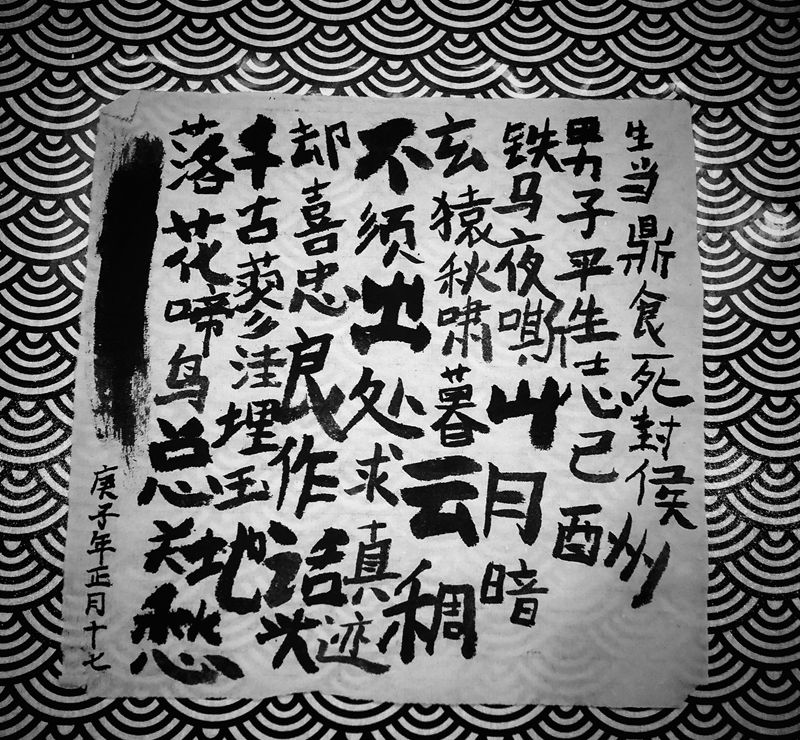 生当鼎食死封侯
男子平生志已酬
铁马夜嘶山月暗
玄猿秋啸暮云稠
不须出处求真迹
却喜忠良作话头
千古蓼洼埋玉地
落花啼鸟总关愁
庚子年正月十七